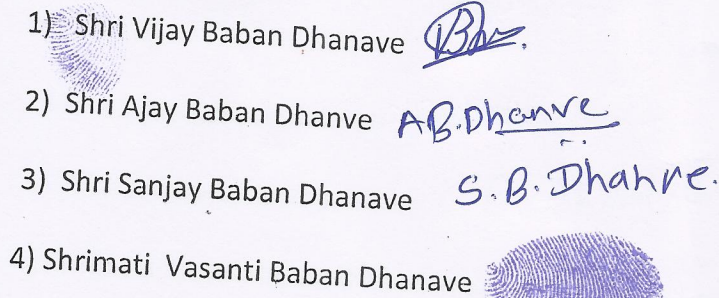 1) Shri Vijay Baban Dhanave
2) Shri Ajay Baban Dhanve A.B.Dhanve
3) Shri Sanjay Baban Dhanave S.B.Dhanve.
4) Shrimati Vasanti Baban Dhanave